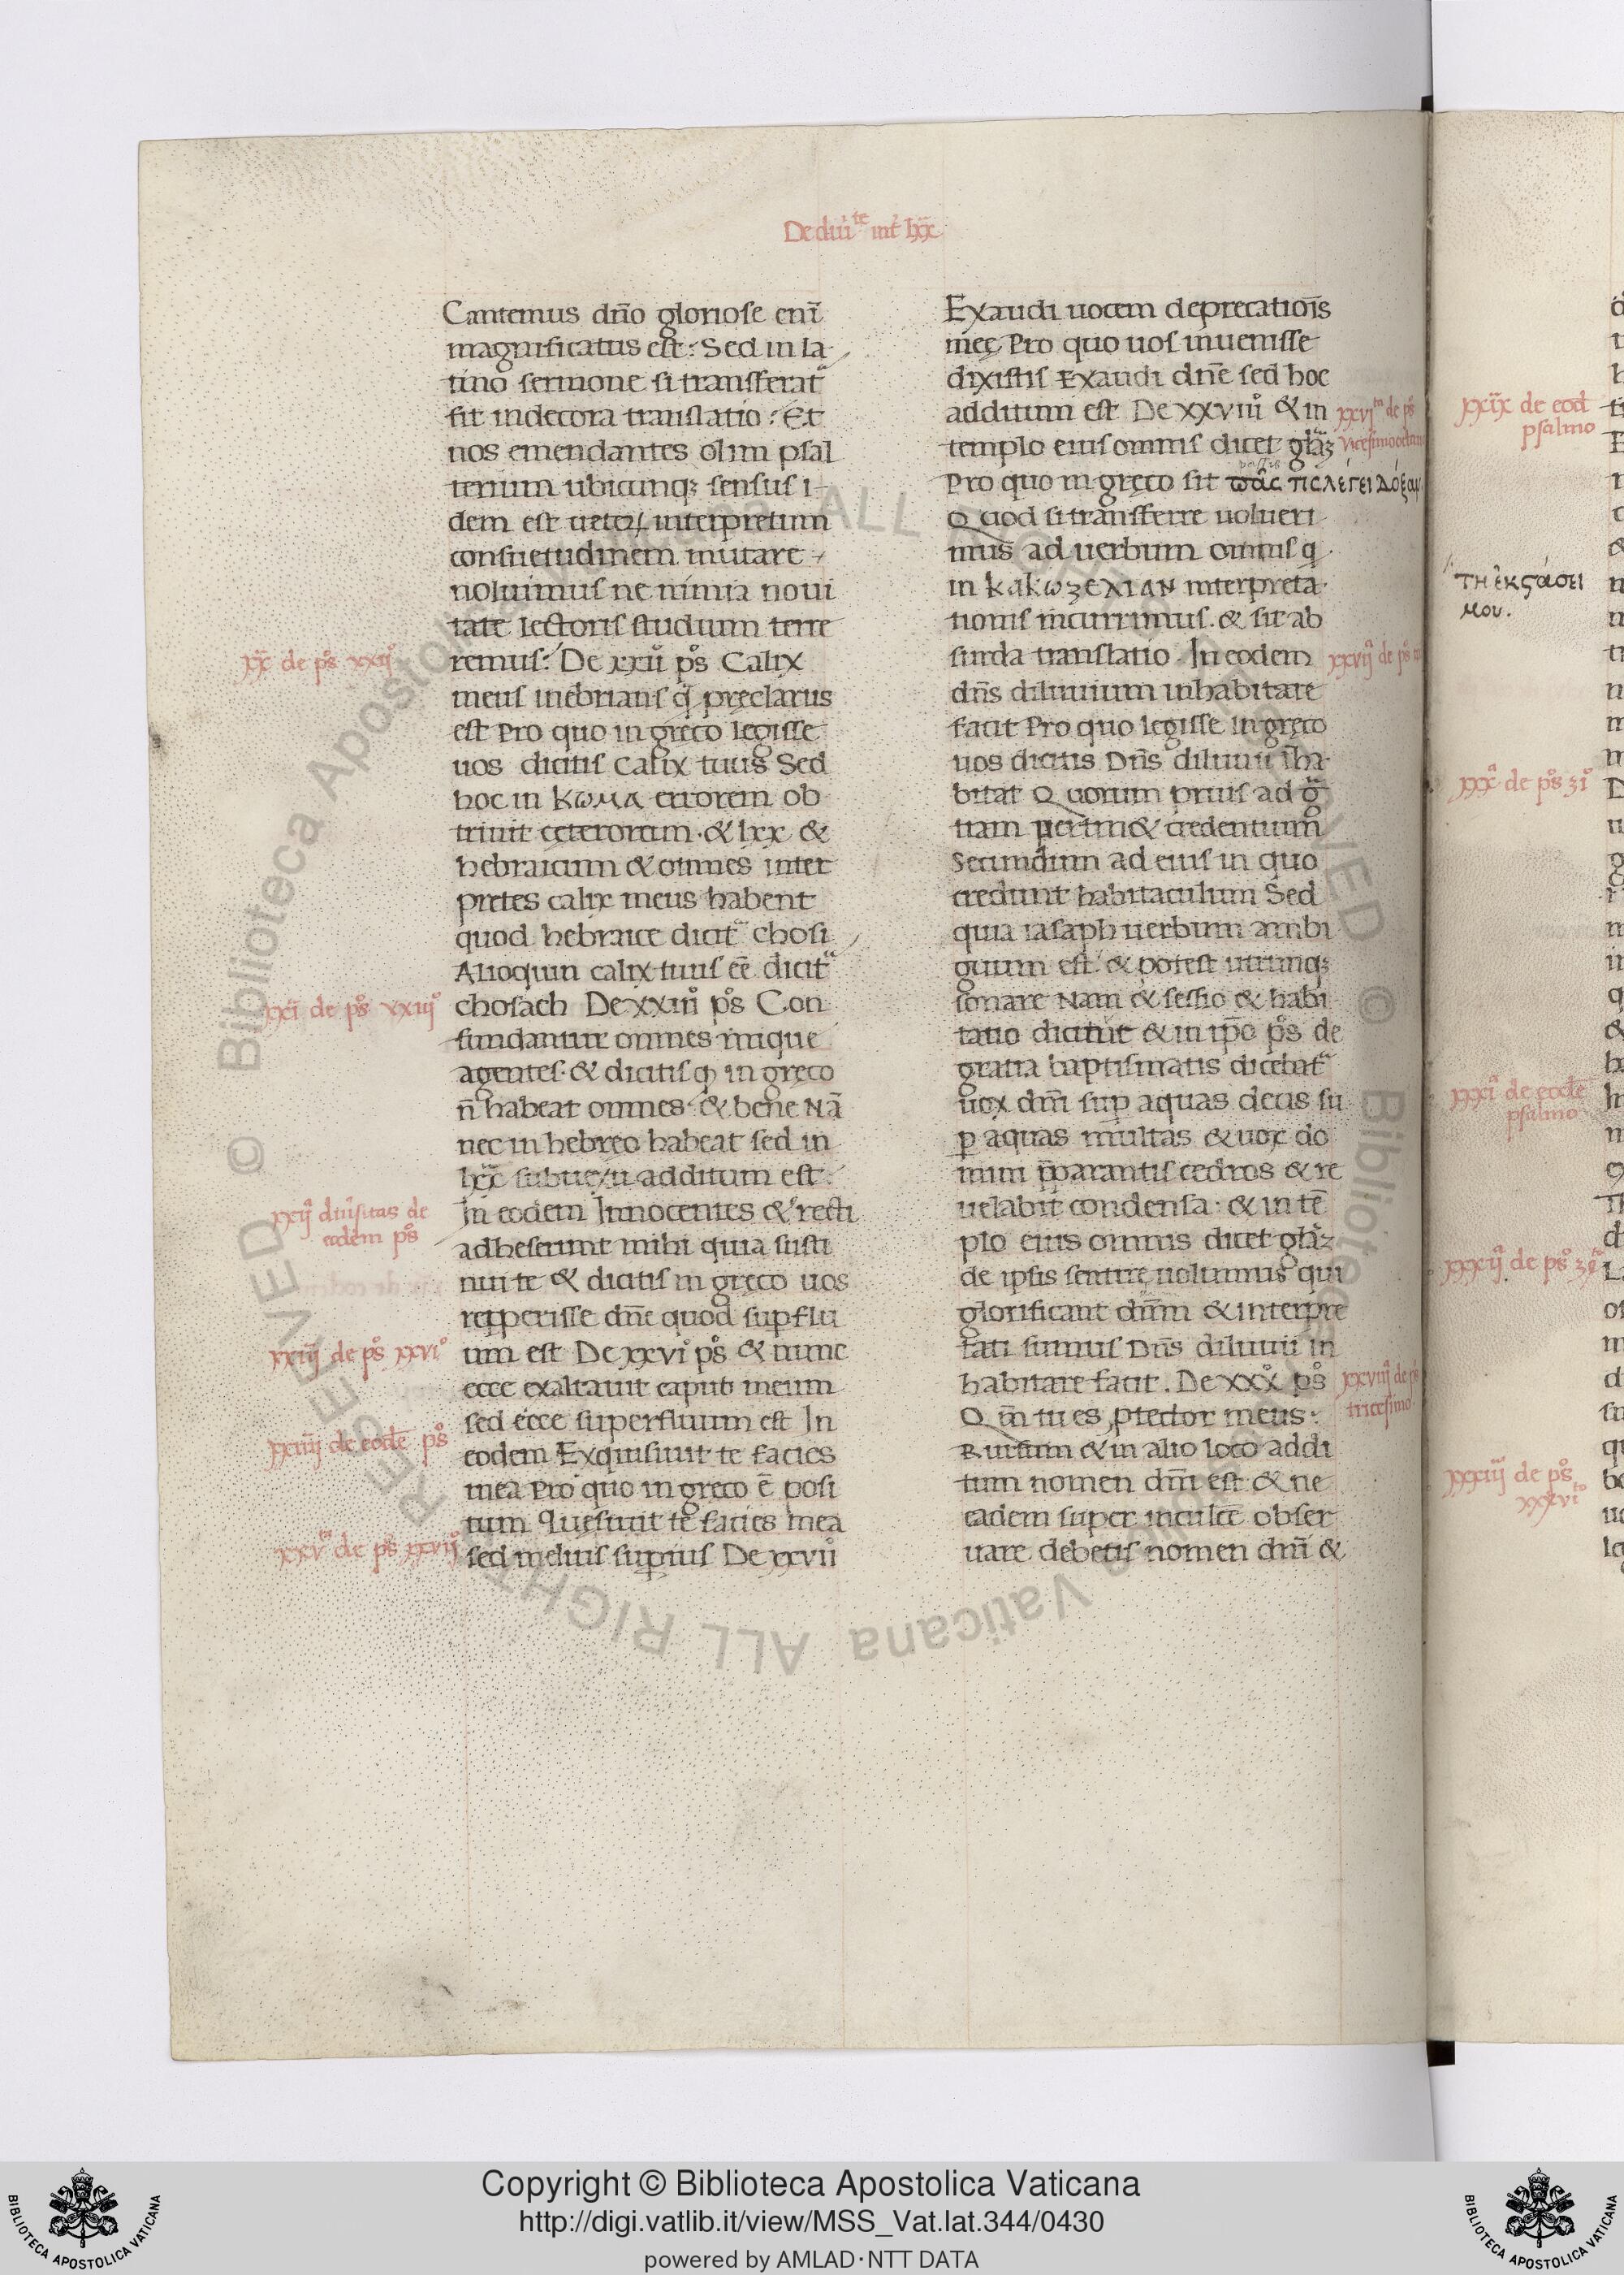 De diui^te int' lxx
Cantemus dn̄o gloriose enī
magnificatus est: Sed in la
tino sermone si transferat᷑
fit indecora translatio: Et
nos emendantes olim psal
terium ubicunqꝫ sensus i
dem est ueteꝝ interpretum
consuetudinem mutare
noluimus ne nimia noui
tate lectoris studium terre
remus: De xxii° ps̊ Calix
xx̃ de ps̊ xxii°
meus inebrians q̄ pręclarus
est Pro quo in gręco legisse
uos dicitis Calix tuus Sed
hoc in κωμα errorem ob
tinuit ceterorum. & lxx &
hebraicum & omnes inter
pretes calix meus habent
quod hebraice dicit᷑ chosi
Alioquin calix tuus eē dicit᷑
chosach De xxiii° ps̊ Con
xxi de ps̊ xxiij°
fundantur omnes inique
agentes: & dicitis ꝙ in gręco
n̄ habeat omnes: & bene Nā
nec in hebręo habeat sed in
lxx̄ sub ueru additum est:
In eodem Innocentes & recti
xxij diu̇sitas de
eodem ps̊
adheserunt mihi quia susti
nui te & dicitis in gręco uos
repperisse dn̄e quod supflu
um est De xxvi° ps̊ & nunc
xxiij de ps̊ xxvi°
ecce exaltauit caput meum
sed ecce superfluum est In
eodem Exquisiuit te facies
xxiiij de eodē ps̊
mea Pro quo in gręco ē posi
tum Quęsiuit te facies mea
sed melius supius De xxvii°
xxv de ps xxvij°
Exaudi uocem deprecatiōis
meę Pro quo uos inuenisse
dixistis Exaudi dn̄e sed hoc
additum est De xxviii° & in
xxvi^m de ps̊
templo eius omnis dicet glāꝫ
Pro quo in gręco sit πᾶς τις λέγει Δόξαν
Quod si transferre uolueri
mus ad uerbum omnis q̄
in κακωζελιαν interpreta
tionis incurrimus. & sit ab
surda translatio. In eodem
xxvij de ps̊
dn̄s diluuium inhabitare
facit Pro quo legisse in gręco
uos dicitis Dn̄s diluuii īha
bitat Quorum prius ad grā
tiam ꝑtin& credentium
Secundum ad eius in quo
credunt habitaculum Sed
quia iasaph uerbum ambi
guum est: & potest utrunqꝫ
sonare Nam & sessio & habi
tatio dicitur & in ip̄o ps̊ de
gratia baptismatis dicebat᷑
uox dn̄i sup aquas deus su
ꝑ aquas multas & uox do
mini p̄parantis cedros & re
uelabit condensa: & in tē
plo eius omnis dicet glāꝫ
de ipsis sentire uolumus qui
glorificant dn̄m & interpre
tati sumus Dn̄s diluuii in
habitare facit. De xxx° ps̊
xxviij de ps̊
tricesimo
Qm̄ tu es ꝓtector meus:
Rursum & in alio loco addi
tum nomen dn̄i est & ne
eadem super inculcē obser
uare debetis nomen dn̄i &
xxix de eod
psalmo
τῇ ἐκστάσει
μου.
xxx de ps̊ 31°
xxxi de eodē
psalmo
xxxij de ps̊
xxxiij de ps̊
xxxvi^to
Copyright © Biblioteca Apostolica Vaticana
http://digi.vatlib.it/view/MSS_Vat.lat.344/0430
powered by AMLAD·NTT DATA
BIBLIOTECA APOSTOLICA VATICANA
BIBLIOTECA APOSTOLICA VATICANA
© Biblioteca Apostolica Vaticana ALL RIGHTS RESERVED